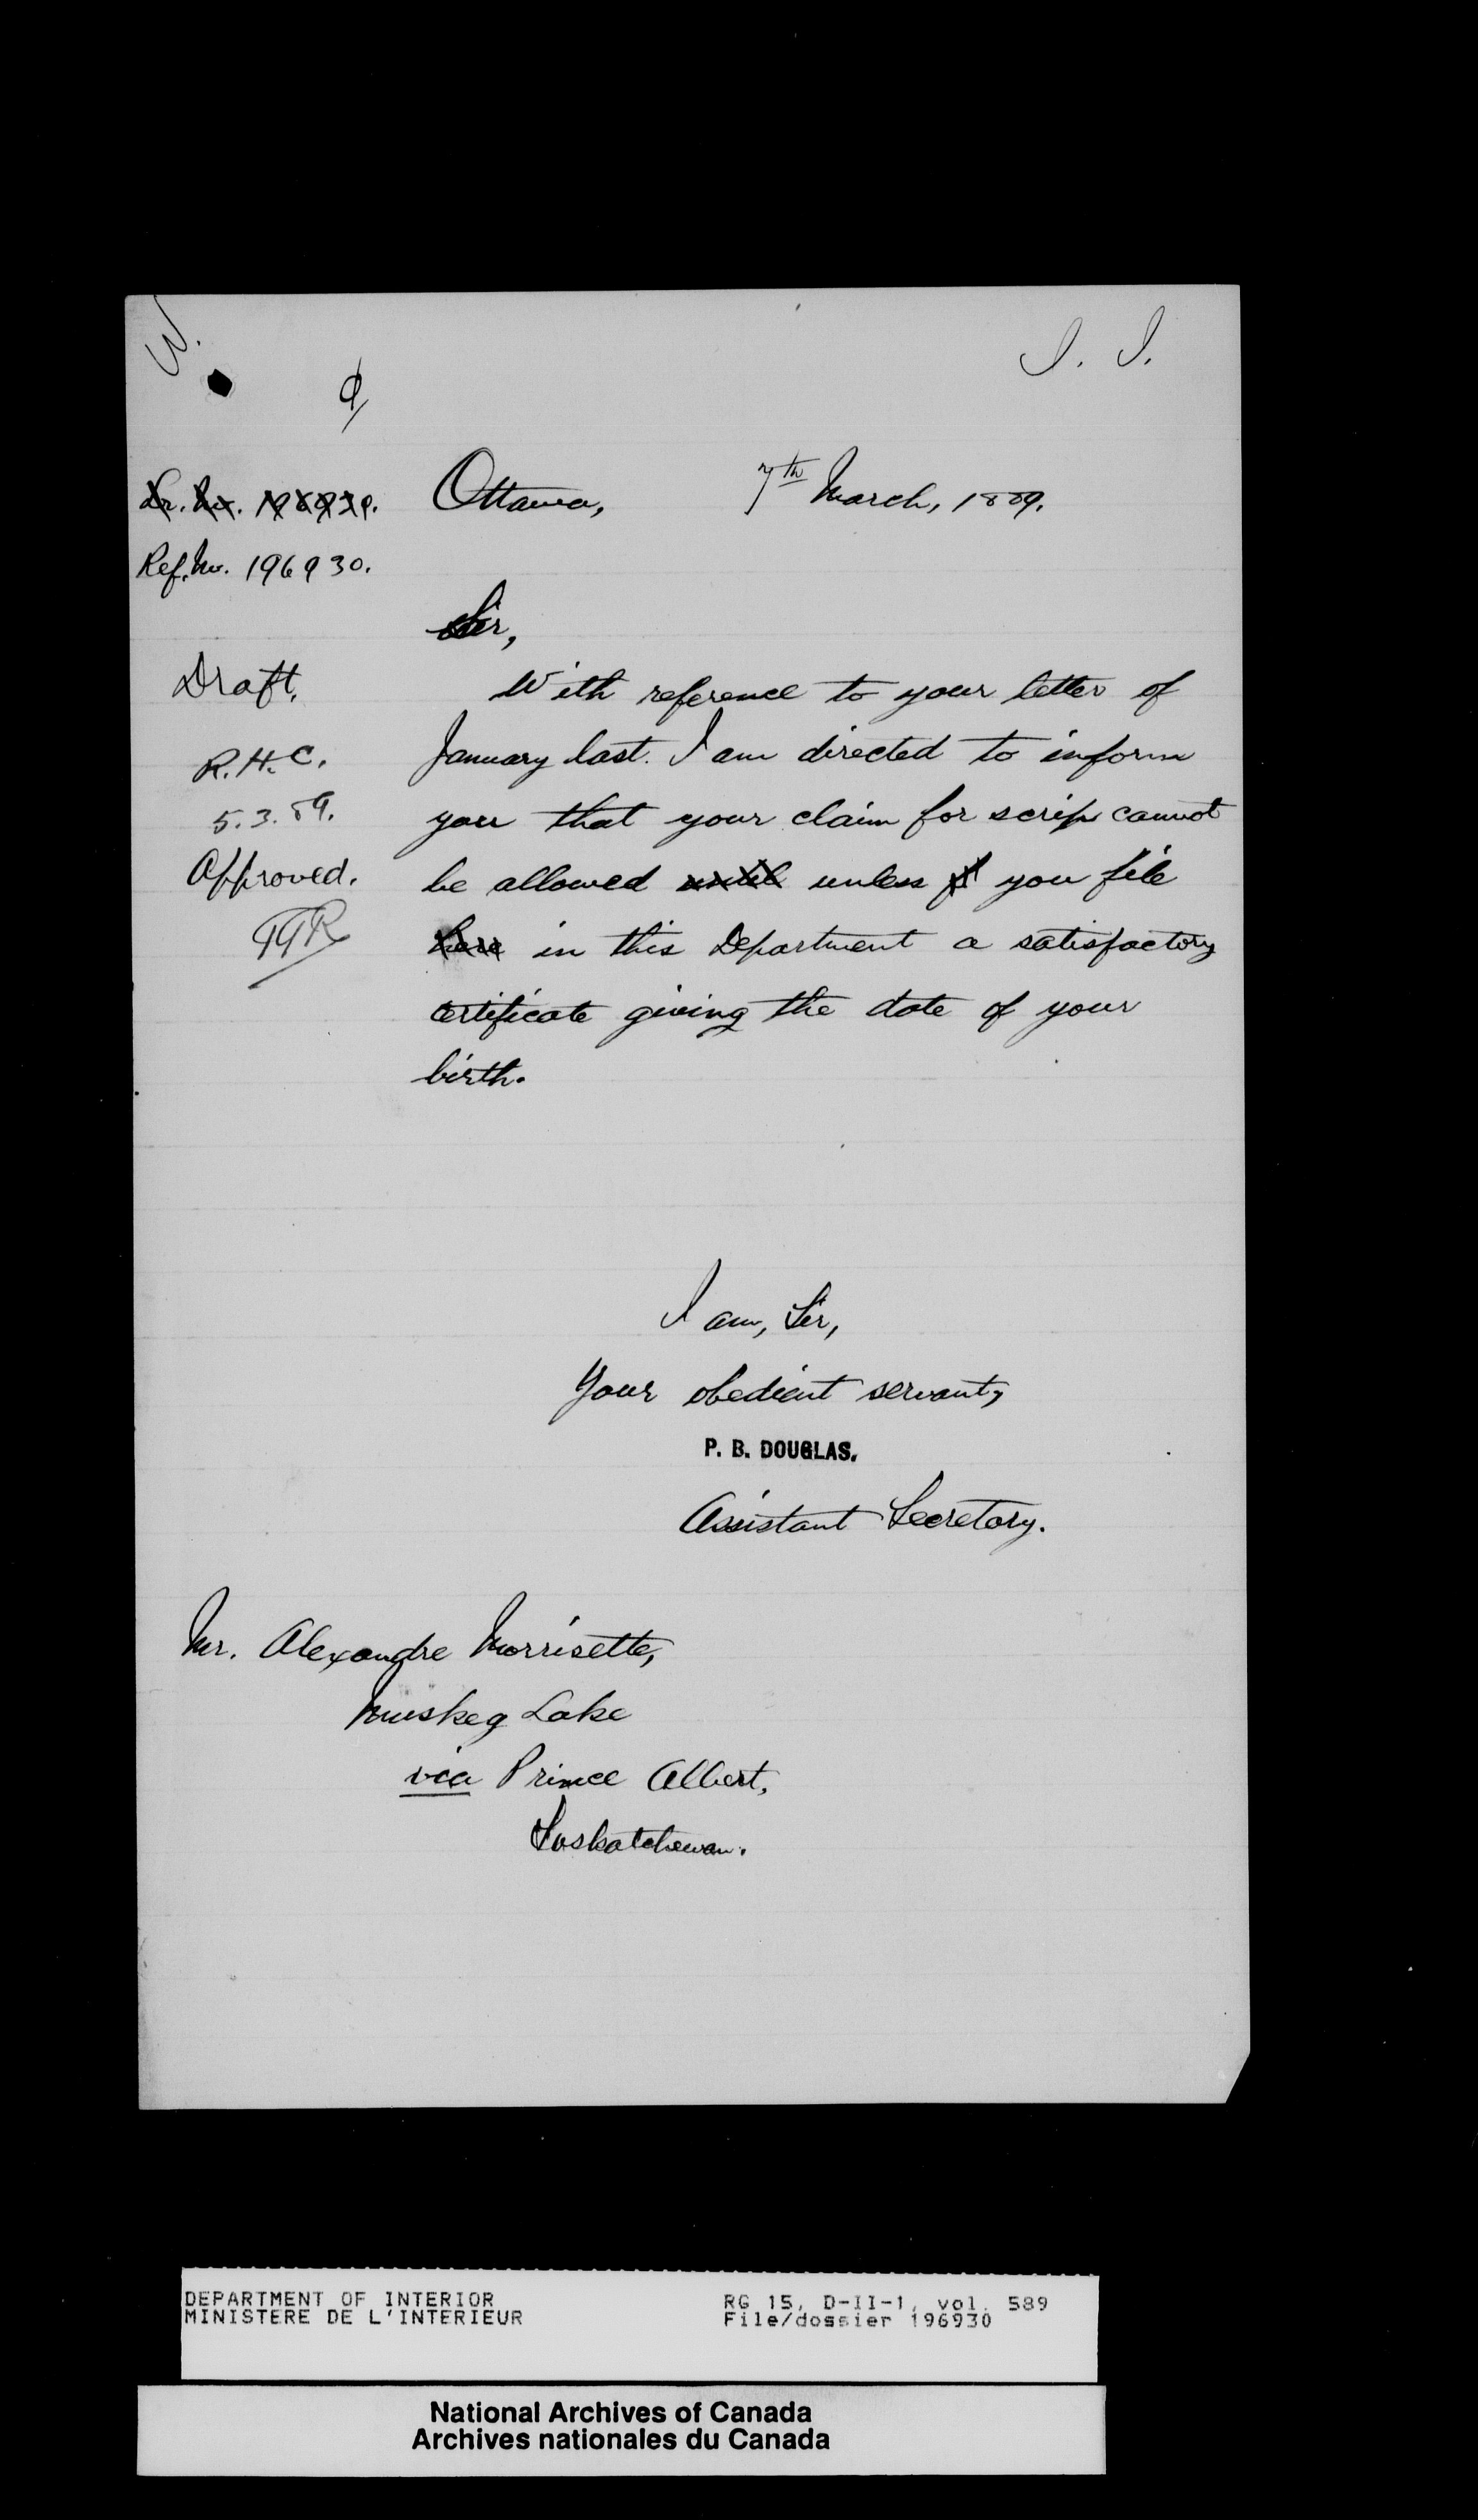 W.
I. I.
Dr. No. 196930.
Ottawa, 7th March, 1889.
Ref. No. 196930.
Sir,
Draft.
With reference to your letter of
R.H.C.
January last. I am directed to inform
5.3.89.
you that your claim for scrip cannot
Approved.
be allowed until unless you file
in this Department a satisfactory
certificate giving the date of your
birth.
I am, Sir,
Your obedient servant,
P. B. DOUGLAS.
Assistant Secretary.
Mr. Alexandre Morrisette,
Muskeg Lake
via Prince Albert,
Saskatchewan.
DEPARTMENT OF INTERIOR
MINISTERE DE L'INTERIEUR
RG 15, D-II-1, vol. 589
File/dossier 196930
National Archives of Canada
Archives nationales du Canada